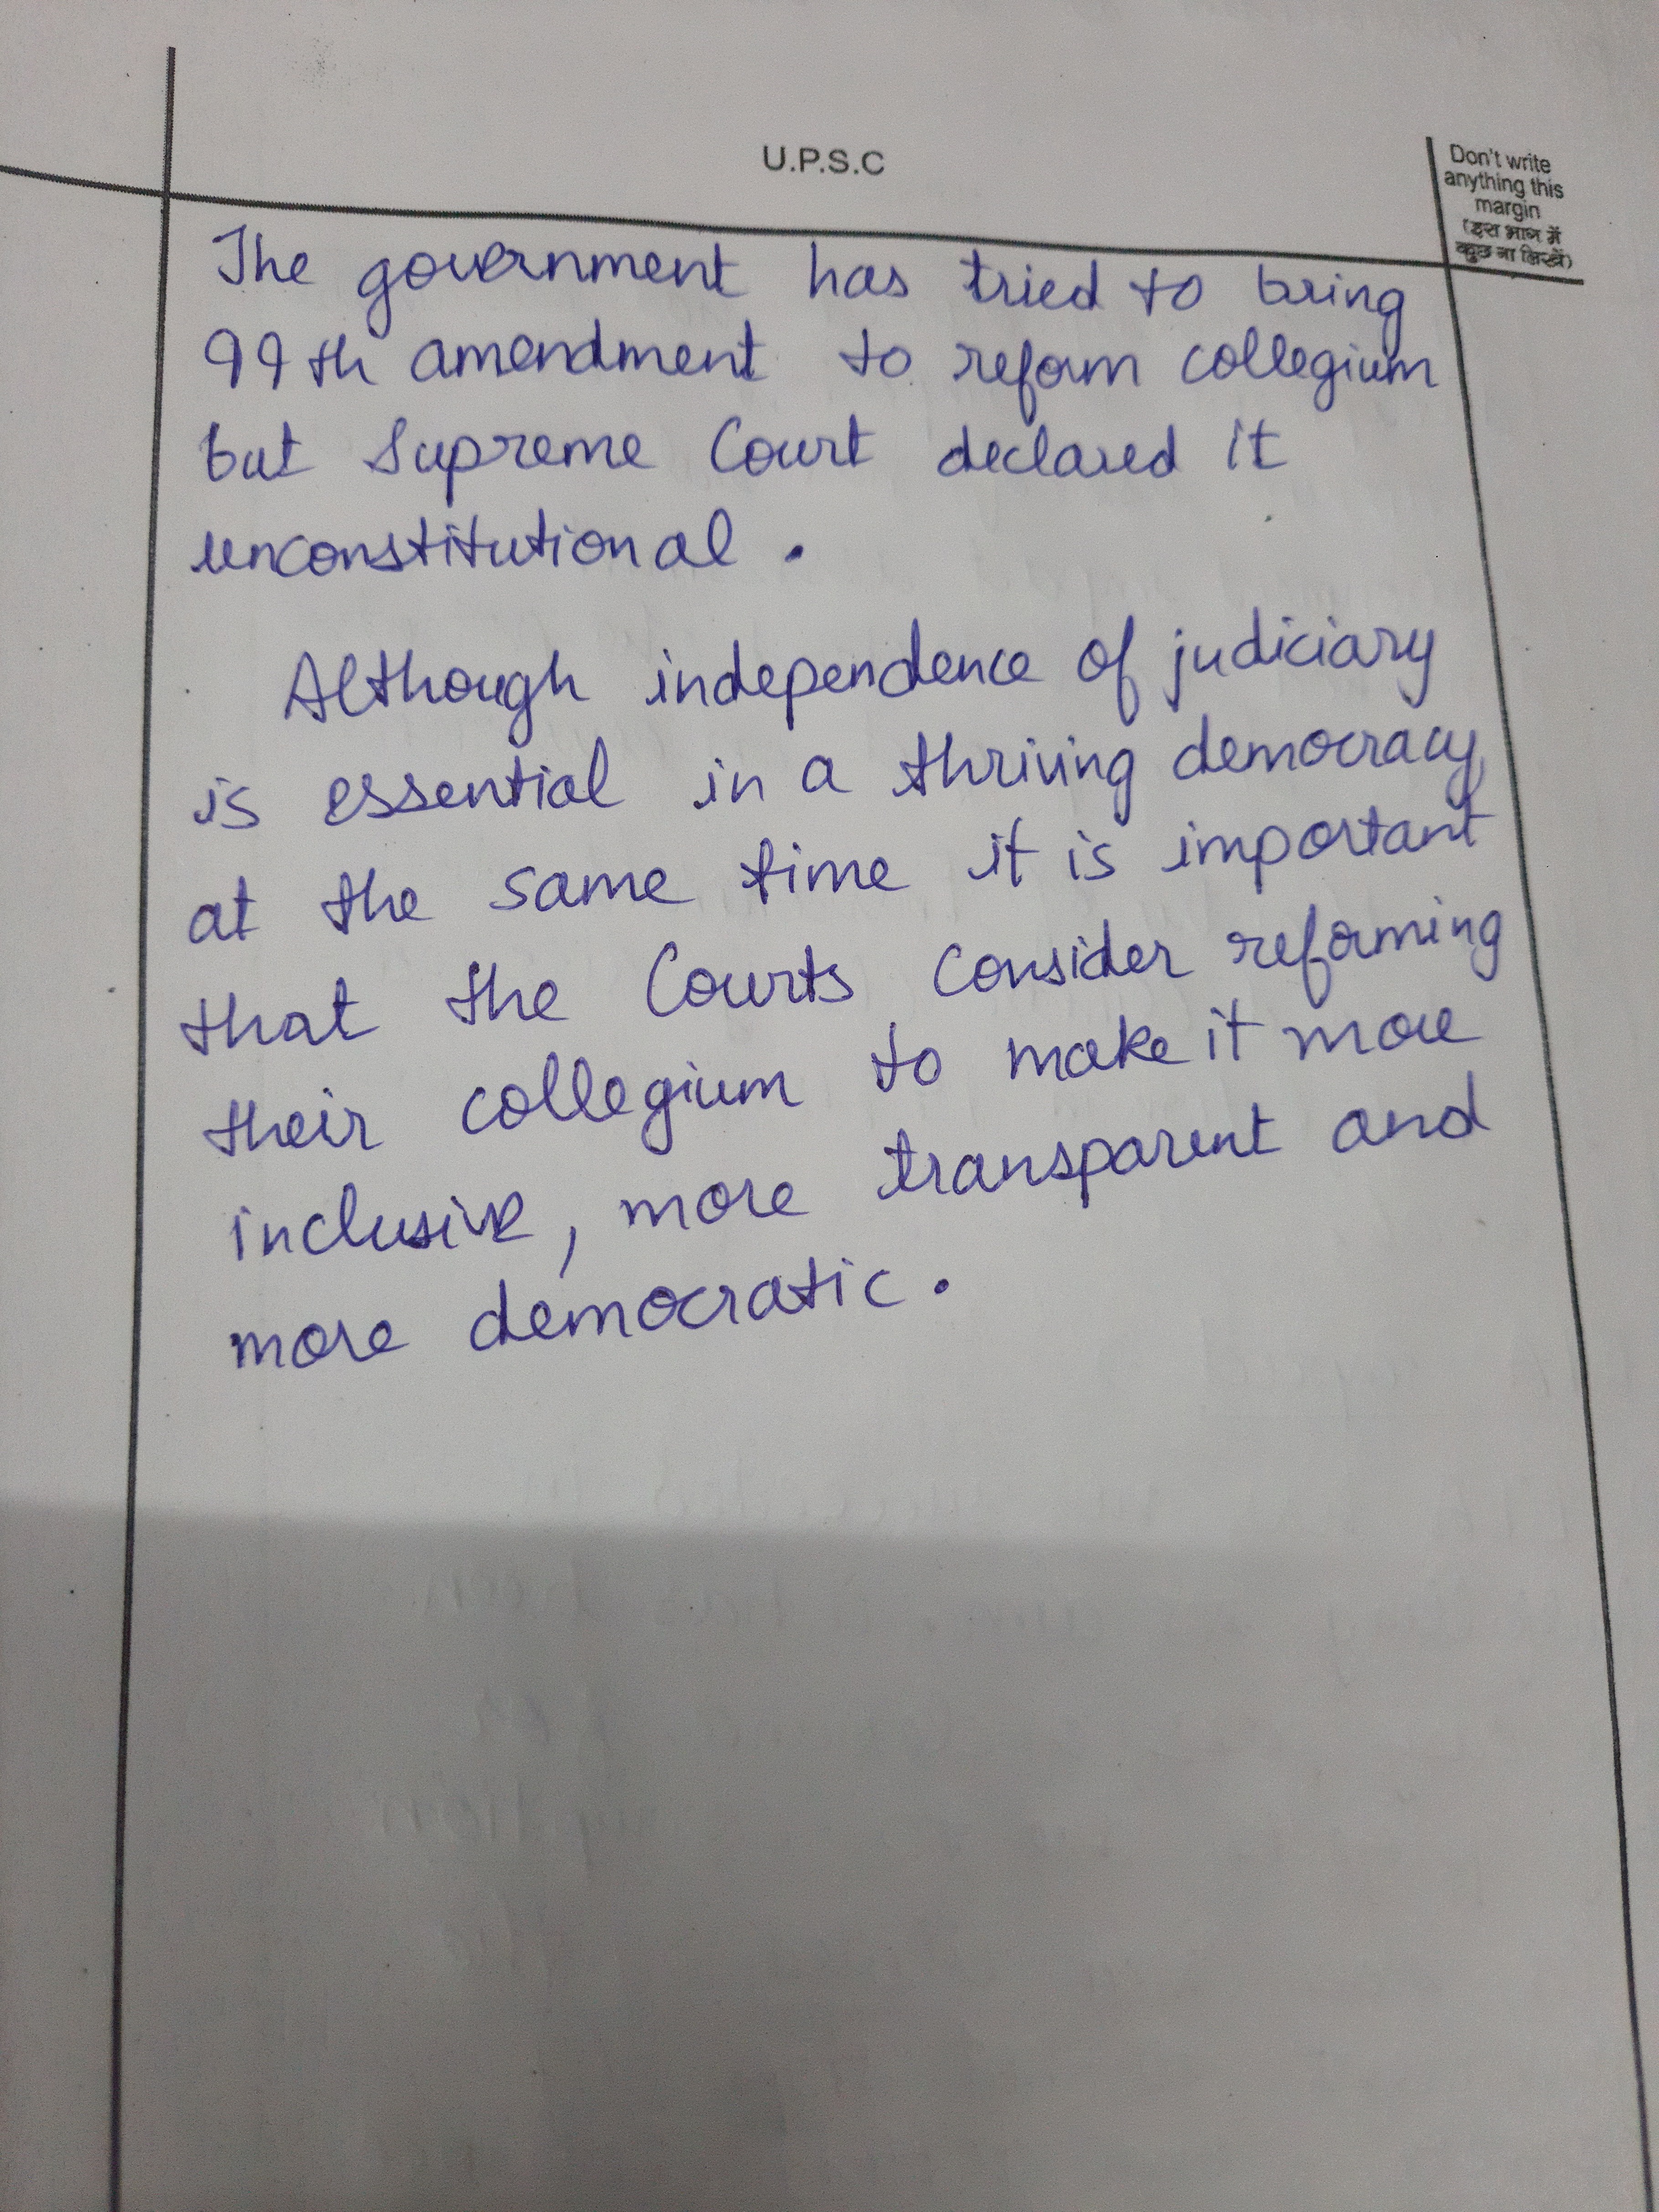 U.P.S.C
Don't write
anything this
margin
(इस भाग में
कुछ ना लिखें)
The government has tried to bring
99th amendment to reform collegium
but Supreme Court declared it
unconstitutional.
Although independence of judiciary
is essential in a thriving democracy,
at the same time it is important
that the Courts consider reforming
their collegium to make it more
inclusive, more transparent and
more democratic.